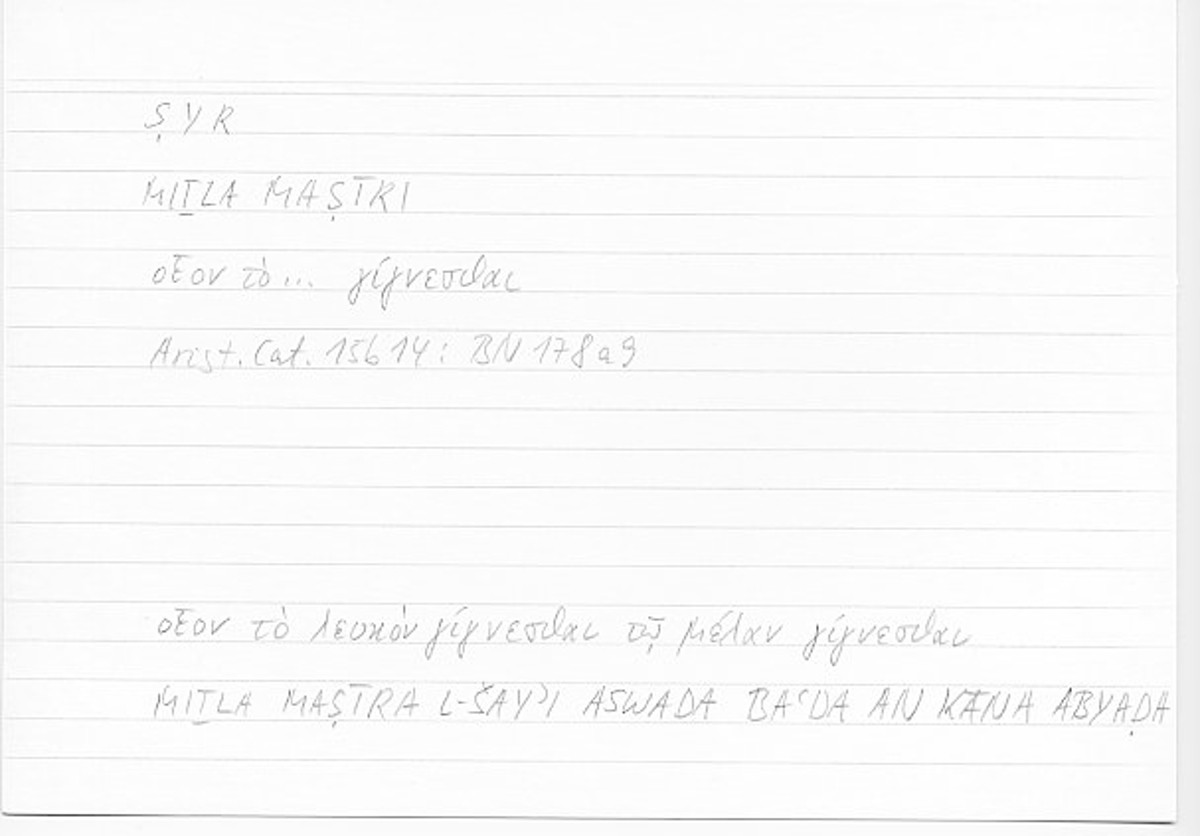 ṢYR
MIṮLA MAṢĪRI
οἷον τὸ... γίγνεσθαι
Arist. Cat. 15b14: BN 178a9
οἷον τὸ λευκὸν γίγνεσθαι τῷ μέλαν γίγνεσθαι
MIṮLA MAṢĪRA L-ŠAYʾI ASWADA BAʿDA AN KĀNA ABYAḌA